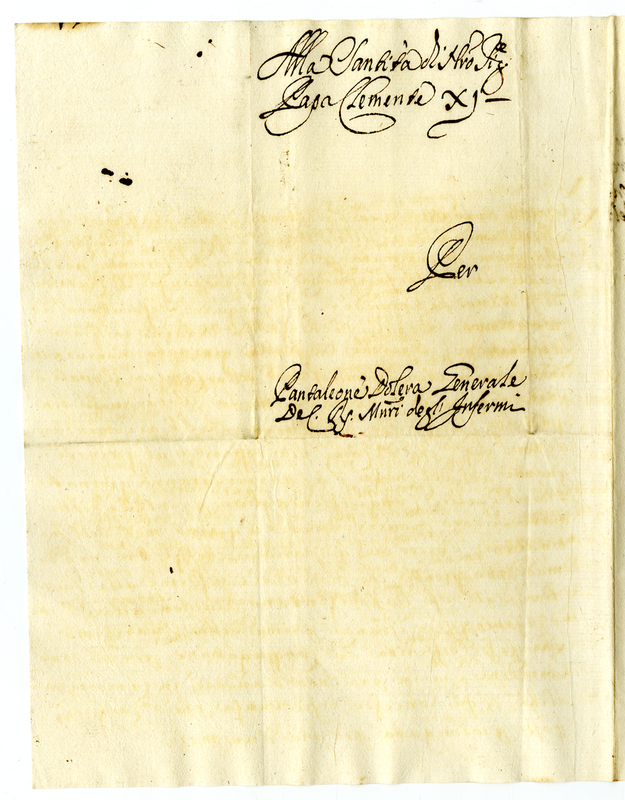 Alla Santità di Nro Sig.re
Papa Clemente XI
Per
Pantaleone Dolera Generale
De C. R. Mnri degl' Infermi